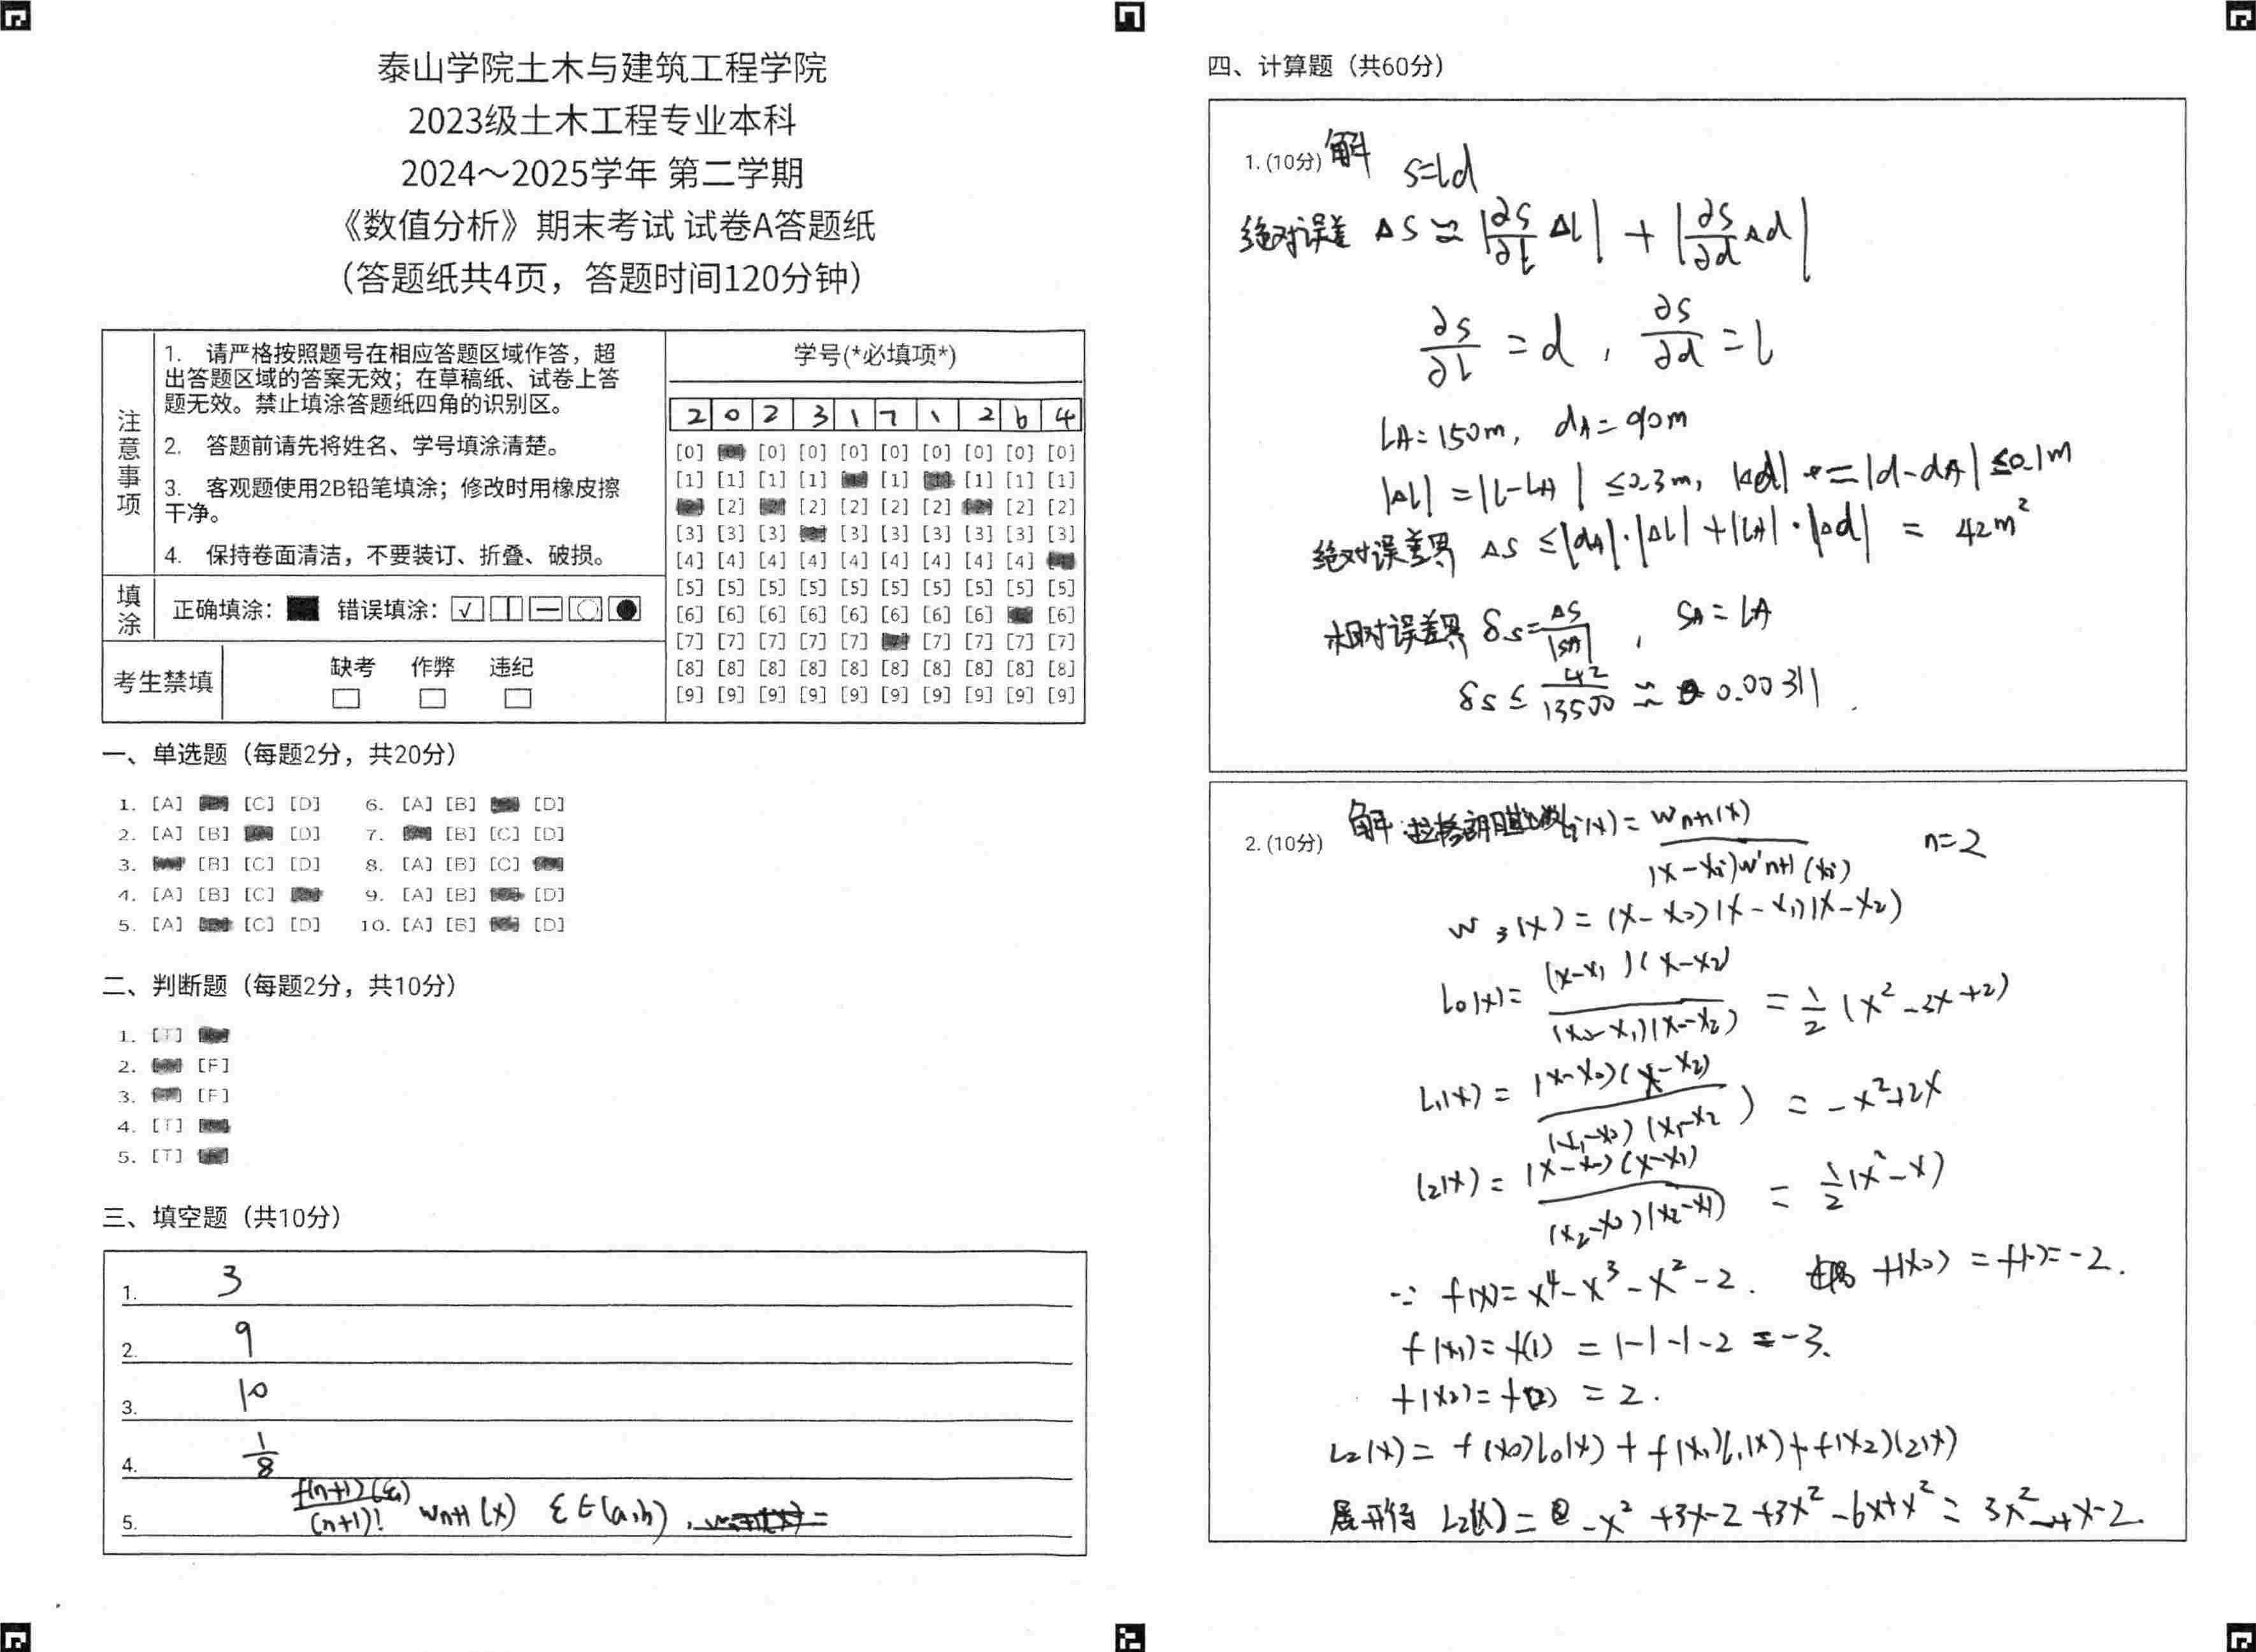 泰山学院土木与建筑工程学院
2023级土木工程专业本科
2024～2025学年 第二学期
《数值分析》期末考试 试卷A答题纸
（答题纸共4页，答题时间120分钟）
注意事项
1. 请严格按照题号在相应答题区域作答，超
出答题区域的答案无效；在草稿纸、试卷上答
题无效。禁止填涂答题纸四角的识别区。
2. 答题前请先将姓名、学号填涂清楚。
3. 客观题使用2B铅笔填涂；修改时用橡皮擦
干净。
4. 保持卷面清洁，不要装订、折叠、破损。
填涂
正确填涂： 错误填涂：
考生禁填
缺考 作弊 违纪
学号(*必填项*)
2 0 2 3 1 7 1 2 6 4
[0] [0] [0] [0] [0] [0] [0] [0] [0]
[1] [1] [1] [1] [1] [1] [1] [1]
[2] [2] [2] [2] [2] [2] [2]
[3] [3] [3] [3] [3] [3] [3] [3] [3]
[4] [4] [4] [4] [4] [4] [4] [4] [4]
[5] [5] [5] [5] [5] [5] [5] [5] [5] [5]
[6] [6] [6] [6] [6] [6] [6] [6] [6]
[7] [7] [7] [7] [7] [7] [7] [7] [7]
[8] [8] [8] [8] [8] [8] [8] [8] [8] [8]
[9] [9] [9] [9] [9] [9] [9] [9] [9] [9]
一、单选题（每题2分，共20分）
1. [A] [C] [D] 6. [A] [B] [D]
2. [A] [B] [D] 7. [B] [C] [D]
3. [B] [C] [D] 8. [A] [B] [C]
4. [A] [B] [C] 9. [A] [B] [D]
5. [A] [C] [D] 10. [A] [B] [D]
二、判断题（每题2分，共10分）
1. [T]
2. [F]
3. [F]
4. [T]
5. [T]
三、填空题（共10分）
1. 3
2. 9
3. 10
4. 1/8
5. f(n+1)(ξ)/(n+1)! Wn+1(x) ξ∈(a,b),
四、计算题（共60分）
1. (10分) 解 S=ld
绝对误差 ΔS ≈ |∂S/∂l Δl| + |∂S/∂d Δd|
∂S/∂l = d, ∂S/∂d = l
LA=150m, dA=90m
|ΔL| = |L-LA| ≤0.3m, |Δd| = |d-dA| ≤0.1m
绝对误差界 ΔS ≤|dA|·|ΔL|+|LA|·|Δd| = 42m²
相对误差界 δs=ΔS/|SA| , SA=LA
δs≤ 42/13500 ≈ 0.00311.
2. (10分) 解 li(x)= Wn+1(x)/(x-xi)W'n+1(xi) n=2
W3(x)=(x-x0)(x-x1)(x-x2)
l0(x)= (x-x1)(x-x2)/(x0-x1)(x0-x2) = 1/2 (x²-3x+2)
L1(x)= (x-x0)(x-x2)/(x1-x0)(x1-x2) = -x²+2x
l2(x)= (x-x0)(x-x1)/(x2-x0)(x2-x1) = 1/2(x²-x)
∵ f(x)=x⁴-x³-x²-2. f(x0)=f(0)=-2.
f(x1)=f(1) =1-1-1-2 =-3.
f(x2)=f(2) = 2.
L2(x)= f(x0)l0(x)+f(x1)l1(x)+f(x2)l2(x)
展开得 L2(x)= -x²+3x-2+3x²-6x+x²= 3x²-4x-2.